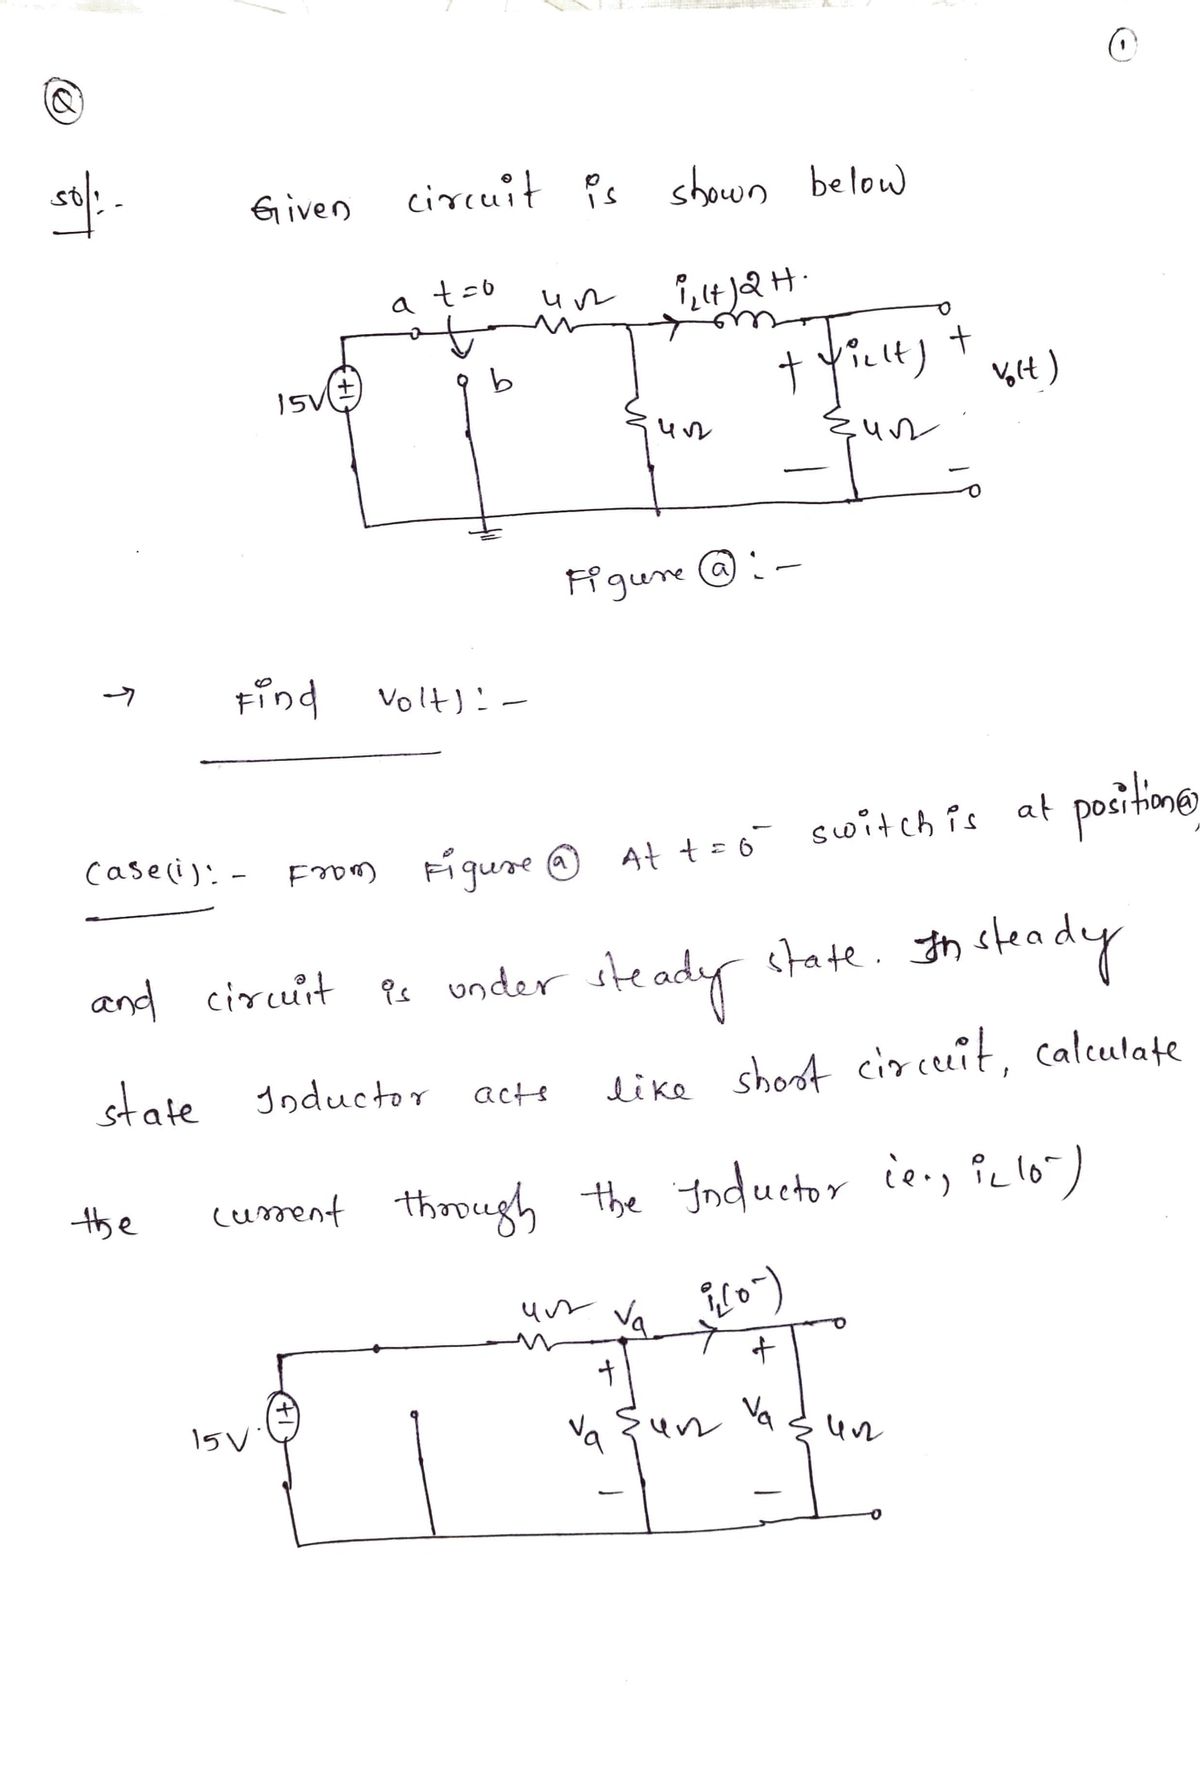 1
Q
sol:-
Given circuit is shown below
a t=0 4Ω iL(t) 2H.
b
15V
4Ω
+ iL(t) + Vo(t)
4Ω
Figure (a):-
→ Find Vo(t):-
Case(i):- From Figure (a) At t=0⁻ switch is at position (a),
and circuit is under steady state. In steady
state Inductor acts like short circuit, calculate
the current through the Inductor ie., iL(0⁻)
4Ω Va iL(0⁻)
+ +
15V. Va 4Ω Va 4Ω
- -